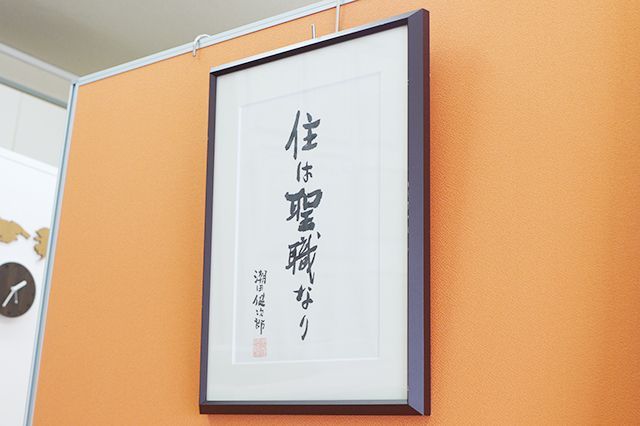 住は聖職なり
潮田健次郎